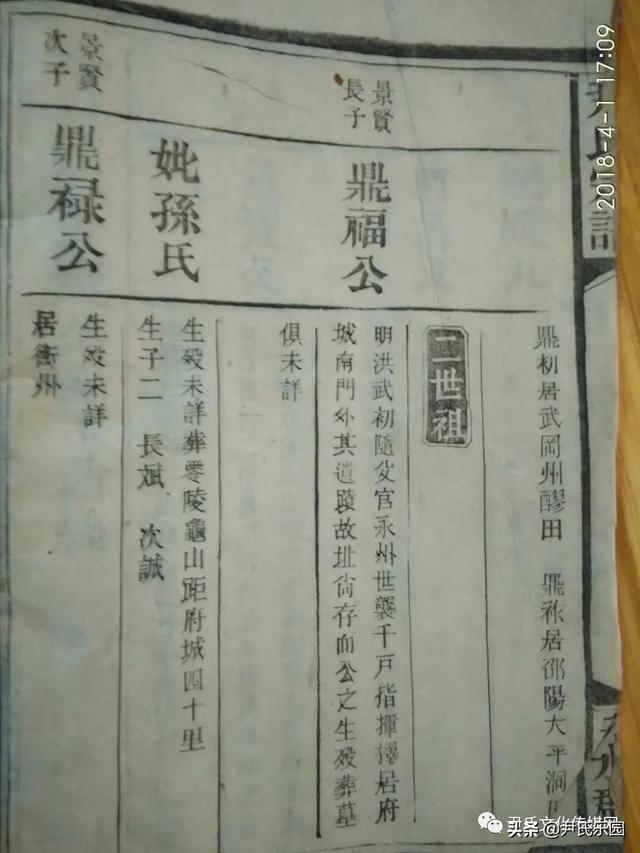 鼎初居武岡州醪田　鼎祚居邵陽大平洞
二世祖
景賢
長子
鼎福公
明洪武初隨父官永州世襲千戶指揮擇居府
城南門外其遺蹟故址尙存而公之生殁葬墓
俱未詳
妣孫氏
生殁未詳葬零陵龜山距府城四十里
生子二　長斌　次誠
景賢
次子
鼎禄公
生殁未詳
居衡州
2018-4-1 17:09
尹氏文化传媒网
头条 @尹氏乐园